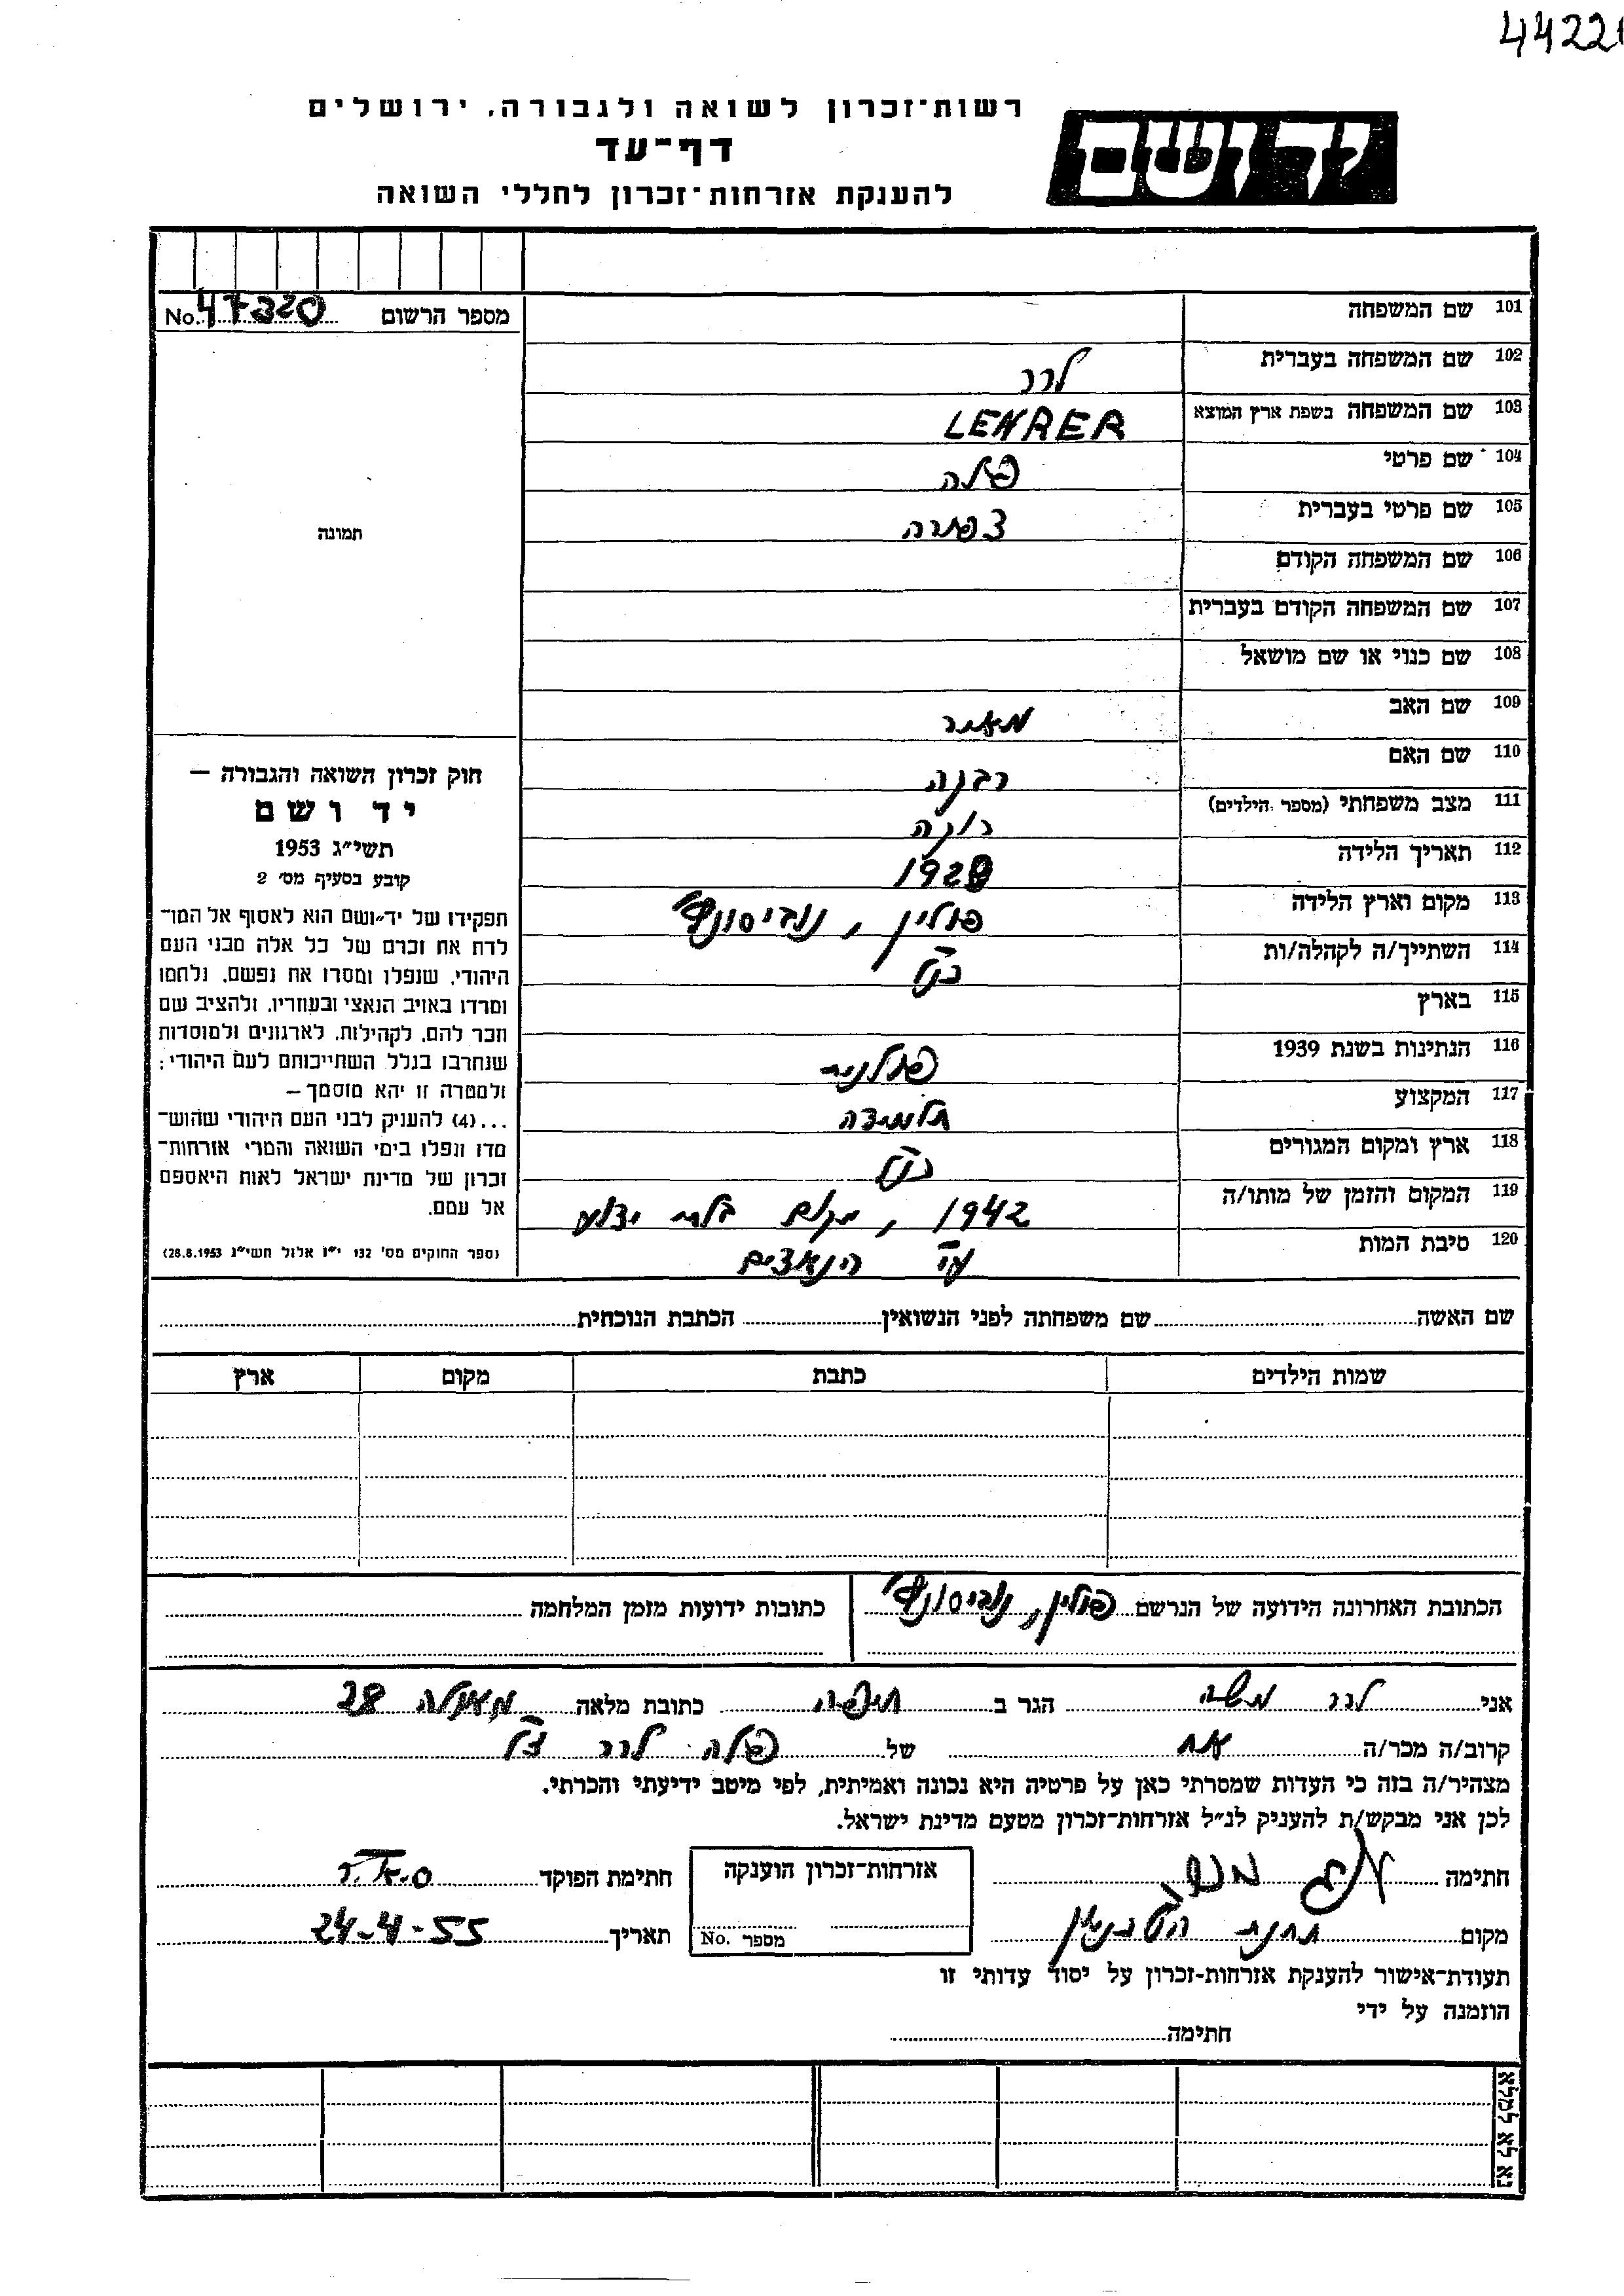 44226
רשות־זכרון לשואה ולגבורה, ירושלים
יד ושם
דף־עד
להענקת אזרחות־זכרון לחללי השואה
מספר הרשום No. 47320
תמונה
חוק זכרון השואה והגבורה —
יד ושם
תשי״ג 1953
קובע בסעיף מס׳ 2
תפקידו של יד־ושם הוא לאסוף אל המו־
לדת את זכרם של כל אלה מבני העם
היהודי, שנפלו ומסרו את נפשם, נלחמו
ומרדו באויב הנאצי ובעוזריו, ולהציב שם
וזכר להם, לקהילות, לארגונים ולמוסדות
שנחרבו בגלל השתייכותם לעם היהודי;
ולמטרה זו יהא מוסמך —
...(4) להעניק לבני העם היהודי שהוש־
מדו ונפלו בימי השואה והמרי אזרחות־
זכרון של מדינת ישראל לאות היאספם
אל עמם.
(ספר החוקים מס׳ 132 י״ז אלול תשי״ג 28.8.1953)
101 שם המשפחה
102 שם המשפחה בעברית לרר
103 שם המשפחה בשפת ארץ המוצא LEHRER
104 שם פרטי פלה
105 שם פרטי בעברית צפורה
106 שם המשפחה הקודם
107 שם המשפחה הקודם בעברית
108 שם כנוי או שם מושאל
109 שם האב מאיר
110 שם האם רבקה
111 מצב משפחתי (מספר הילדים) רוקה
112 תאריך הלידה 1928
113 מקום וארץ הלידה פולין,
114 השתייך/ה לקהלה/ות כנ״ל
115 בארץ
116 הנתינות בשנת 1939 פולנית
117 המקצוע תלמידה
118 ארץ ומקום המגורים כנ״ל
119 המקום והזמן של מותו/ה 1942, מקום בלתי ידוע
120 סיבת המות ע״י הנאצים
שם האשה שם משפחתה לפני הנשואין הכתבת הנוכחית
שמות הילדים כתבת מקום ארץ
הכתובת האחרונה הידועה של הנרשם פולין,
כתובות ידועות מזמן המלחמה
אני לרר משה הגר ב חיפה כתובת מלאה 28
קרוב/ה מכר/ה אח של פלה לרר ז״ל
מצהיר/ה בזה כי העדות שמסרתי כאן על פרטיה היא נכונה ואמיתית, לפי מיטב ידיעתי והכרתי.
לכן אני מבקש/ת להעניק לנ״ל אזרחות־זכרון מטעם מדינת ישראל.
חתימה
אזרחות־זכרון הוענקה
חתימת הפוקד
מקום תחנת
מספר No.
תאריך 24-4-55
תעודת־אישור להענקת אזרחות־זכרון על יסוד עדותי זו
הוזמנה על ידי
חתימה
נא לא למלא